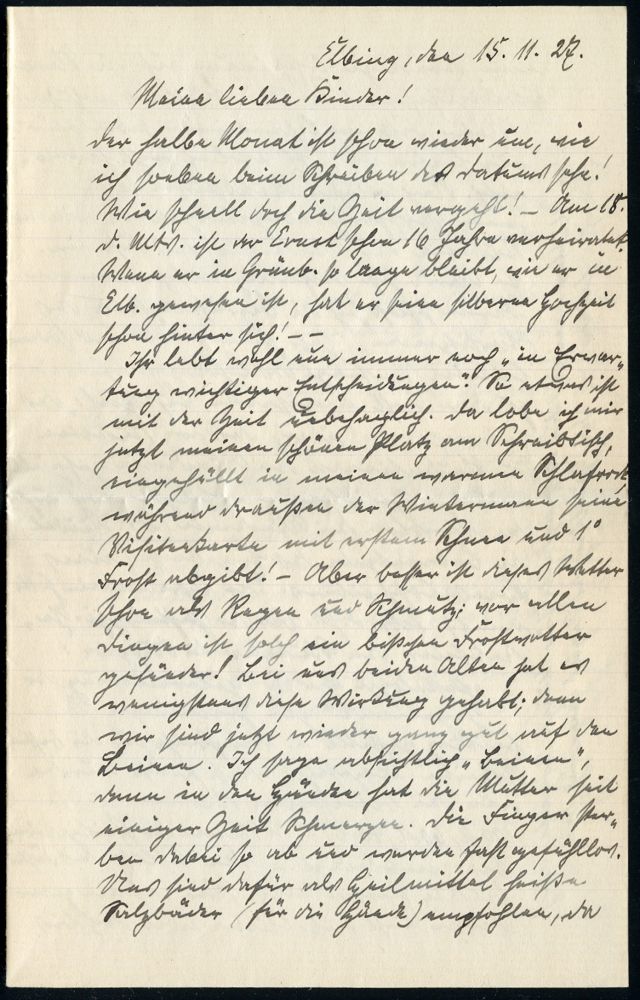 Elbing, den 15. 11. 27.
Meine lieben Kinder!
Der halbe Monat ist schon wieder um, wie
ich soeben beim Schreiben des Datums sehe!
Wie schnell doch die Zeit vergeht! – Am 18.
d. Mts. ist der Ernst schon 16 Jahre verheiratet.
Wenn er in Grünb. so lange bleibt, wie er in
Elb. gewesen ist, hat er seine silberne Hochzeit
schon hinter sich! – –
Ihr lebt wohl nun immer noch „in Erwar„
tung wichtiger Entscheidungen“. So etwas ist
mit der Zeit unbehaglich. Da lobe ich mir
jetzt meinen schönen Platz am Schreibtisch,
eingehüllt in meinen warmen Schlafrock,
während draußen der Wintermann seine
Visitenkarte mit erstem Schnee und 1°
Frost abgibt! – Aber besser ist dieses Wetter
schon als Regen und Schmutz; vor allen
Dingen ist solch ein bißchen Frostwetter
gesünder! Bei uns beiden Alten hat es
wenigstens diese Wirkung gehabt; denn
wir sind jetzt wieder ganz gut auf den
Beinen. Ich sage absichtlich „Beinen“,
denn in den Händen hat die Mutter seit
einiger Zeit Schmerzen. Die Finger ster„
ben dabei so ab und werden fast gefühllos.
Uns sind dafür als Heilmittel heiße
Salzbäder (für die Hände) empfohlen, da